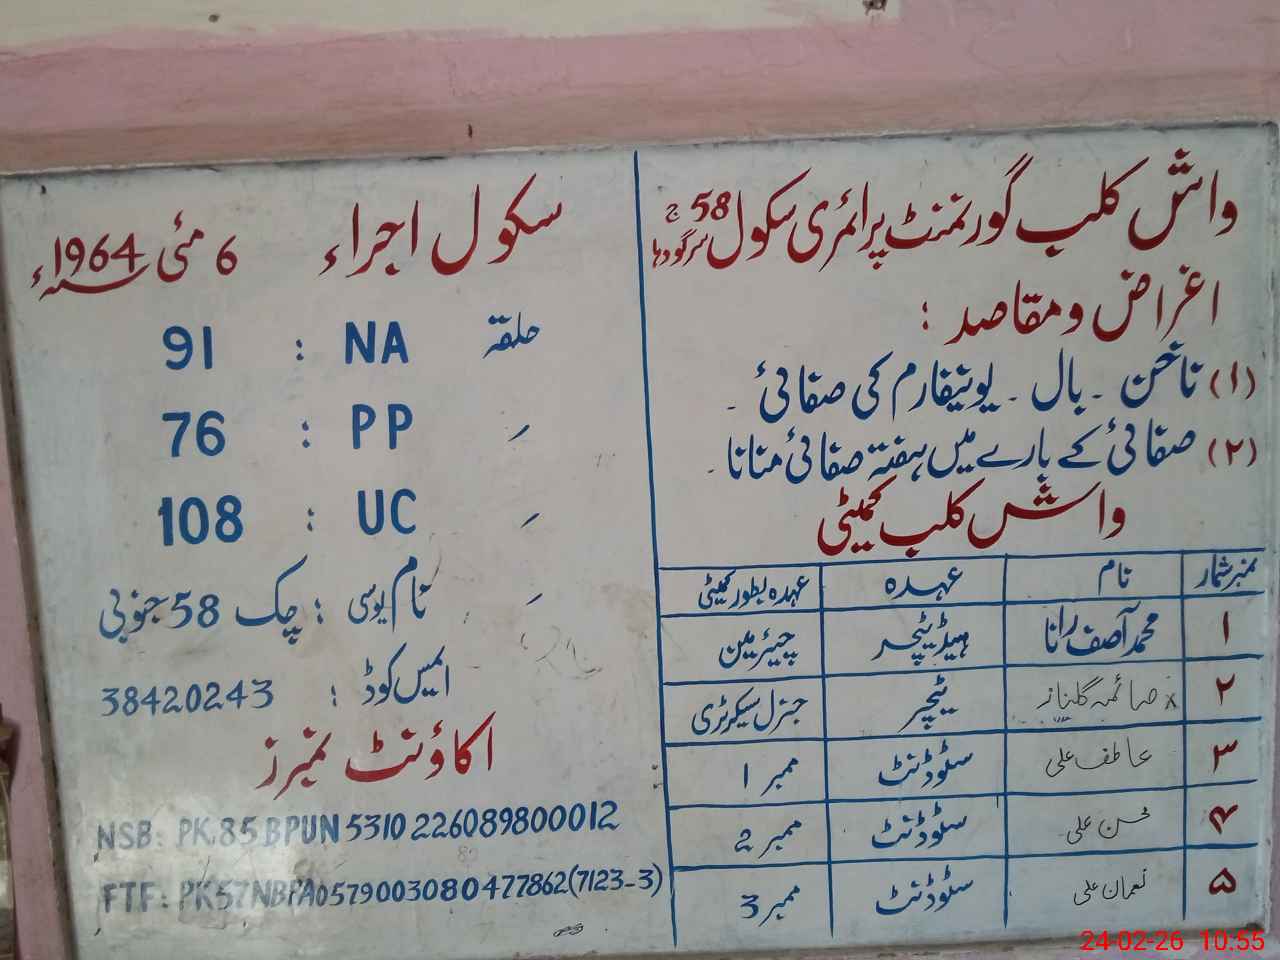 واش کلب گورنمنٹ پرائمری سکول 58 ج سرگودہا
اغراض و مقاصد :
(۱) ناخن ۔ بال ۔ یونیفارم کی صفائی ۔
(۲) صفائی کے بارے میں ہفتہ صفائی منانا ۔
واش کلب کمیٹی
نمبر شمار نام عہدہ عہدہ بطور کمیٹی
۱ محمد آصف رانا ہیڈ ٹیچر چیئرمین
۲ x صائمہ گلناز ٹیچر جنرل سیکرٹری
۳ عاطف علی سٹوڈنٹ ممبر 1
۴ محسن علی سٹوڈنٹ ممبر 2
۵ نعمان علی سٹوڈنٹ ممبر 3
سکول اجراء 6 مئی 1964ء
حلقہ NA : 91
〃 PP : 76
〃 UC : 108
〃 نام یوسی : چک 58 جنوبی
ایمس کوڈ : 38420243
اکاؤنٹ نمبرز
NSB: PK.85BPUN5310226089800012
FTF: PK57NBPA0579003080477862(7123-3)
24-02-26 10:55